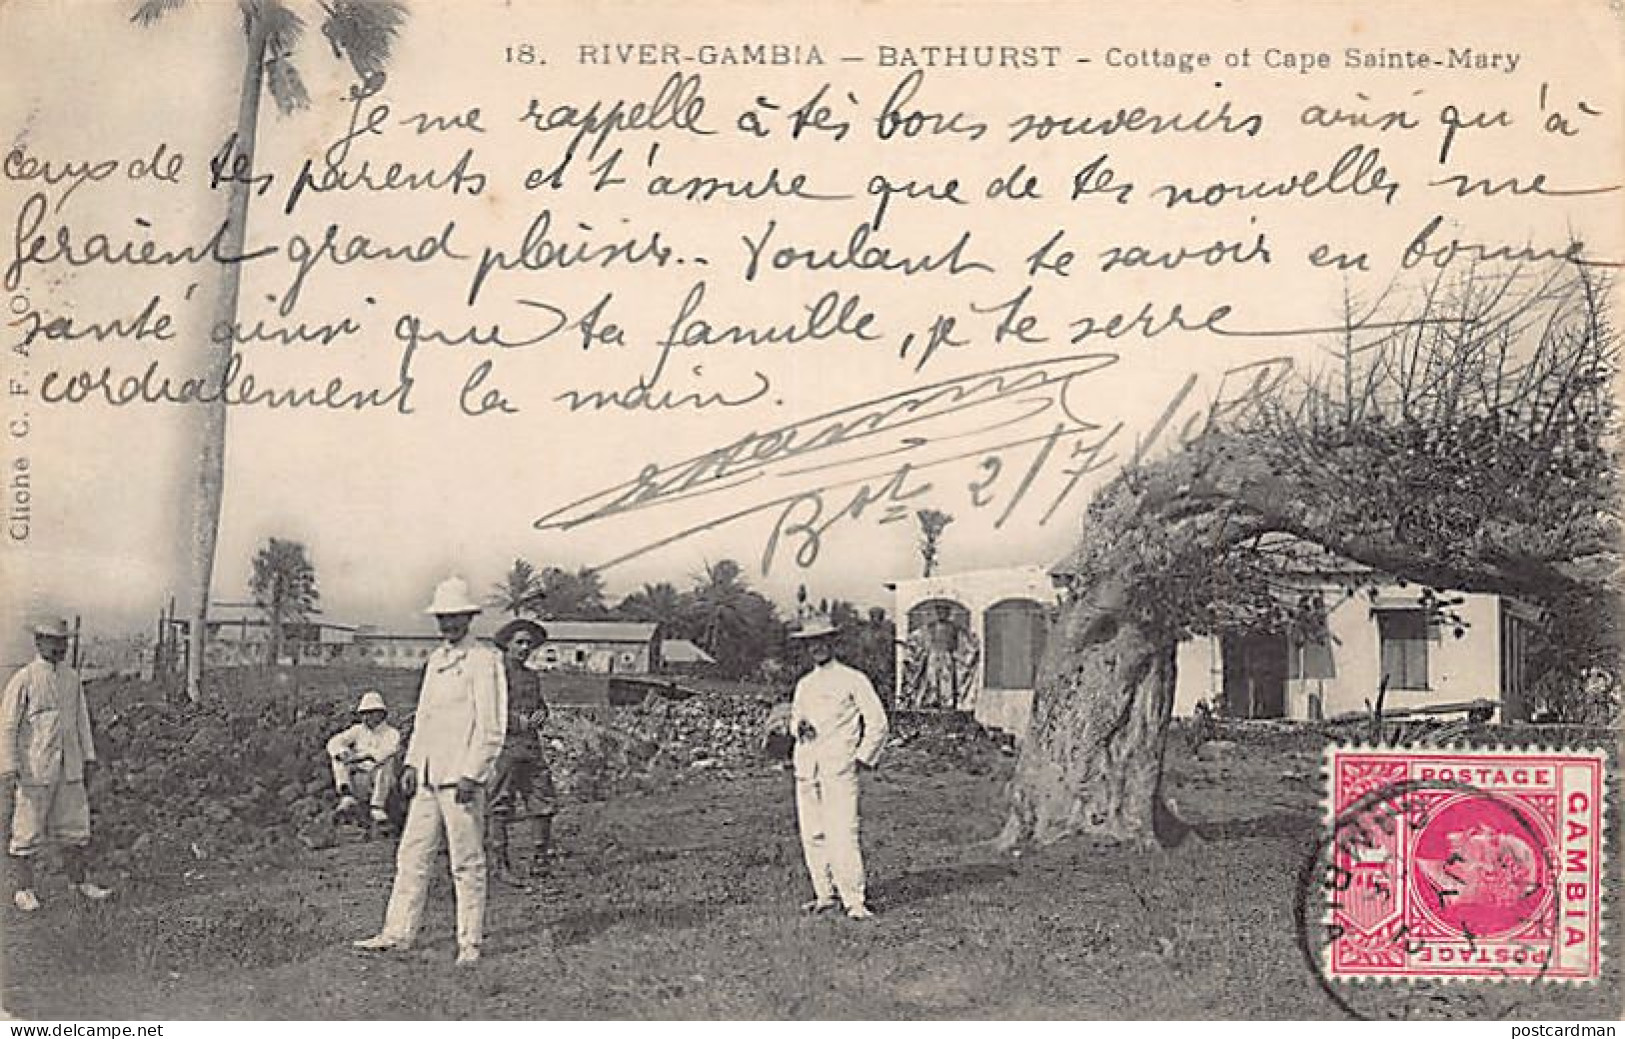 18. RIVER-GAMBIA — BATHURST - Cottage of Cape Sainte-Mary
Je me rappelle à tes bons souvenirs ainsi qu'à
ceux de tes parents et t'assure que de tes nouvelles me
feraient grand plaisir.. Voulant te savoir en bonne
santé ainsi que ta famille, je te serre
cordialement la main.
Bst 2/7/
Cliché C. F. A. O.
POSTAGE
GAMBIA
POSTAGE
GAMBIA
postcardman